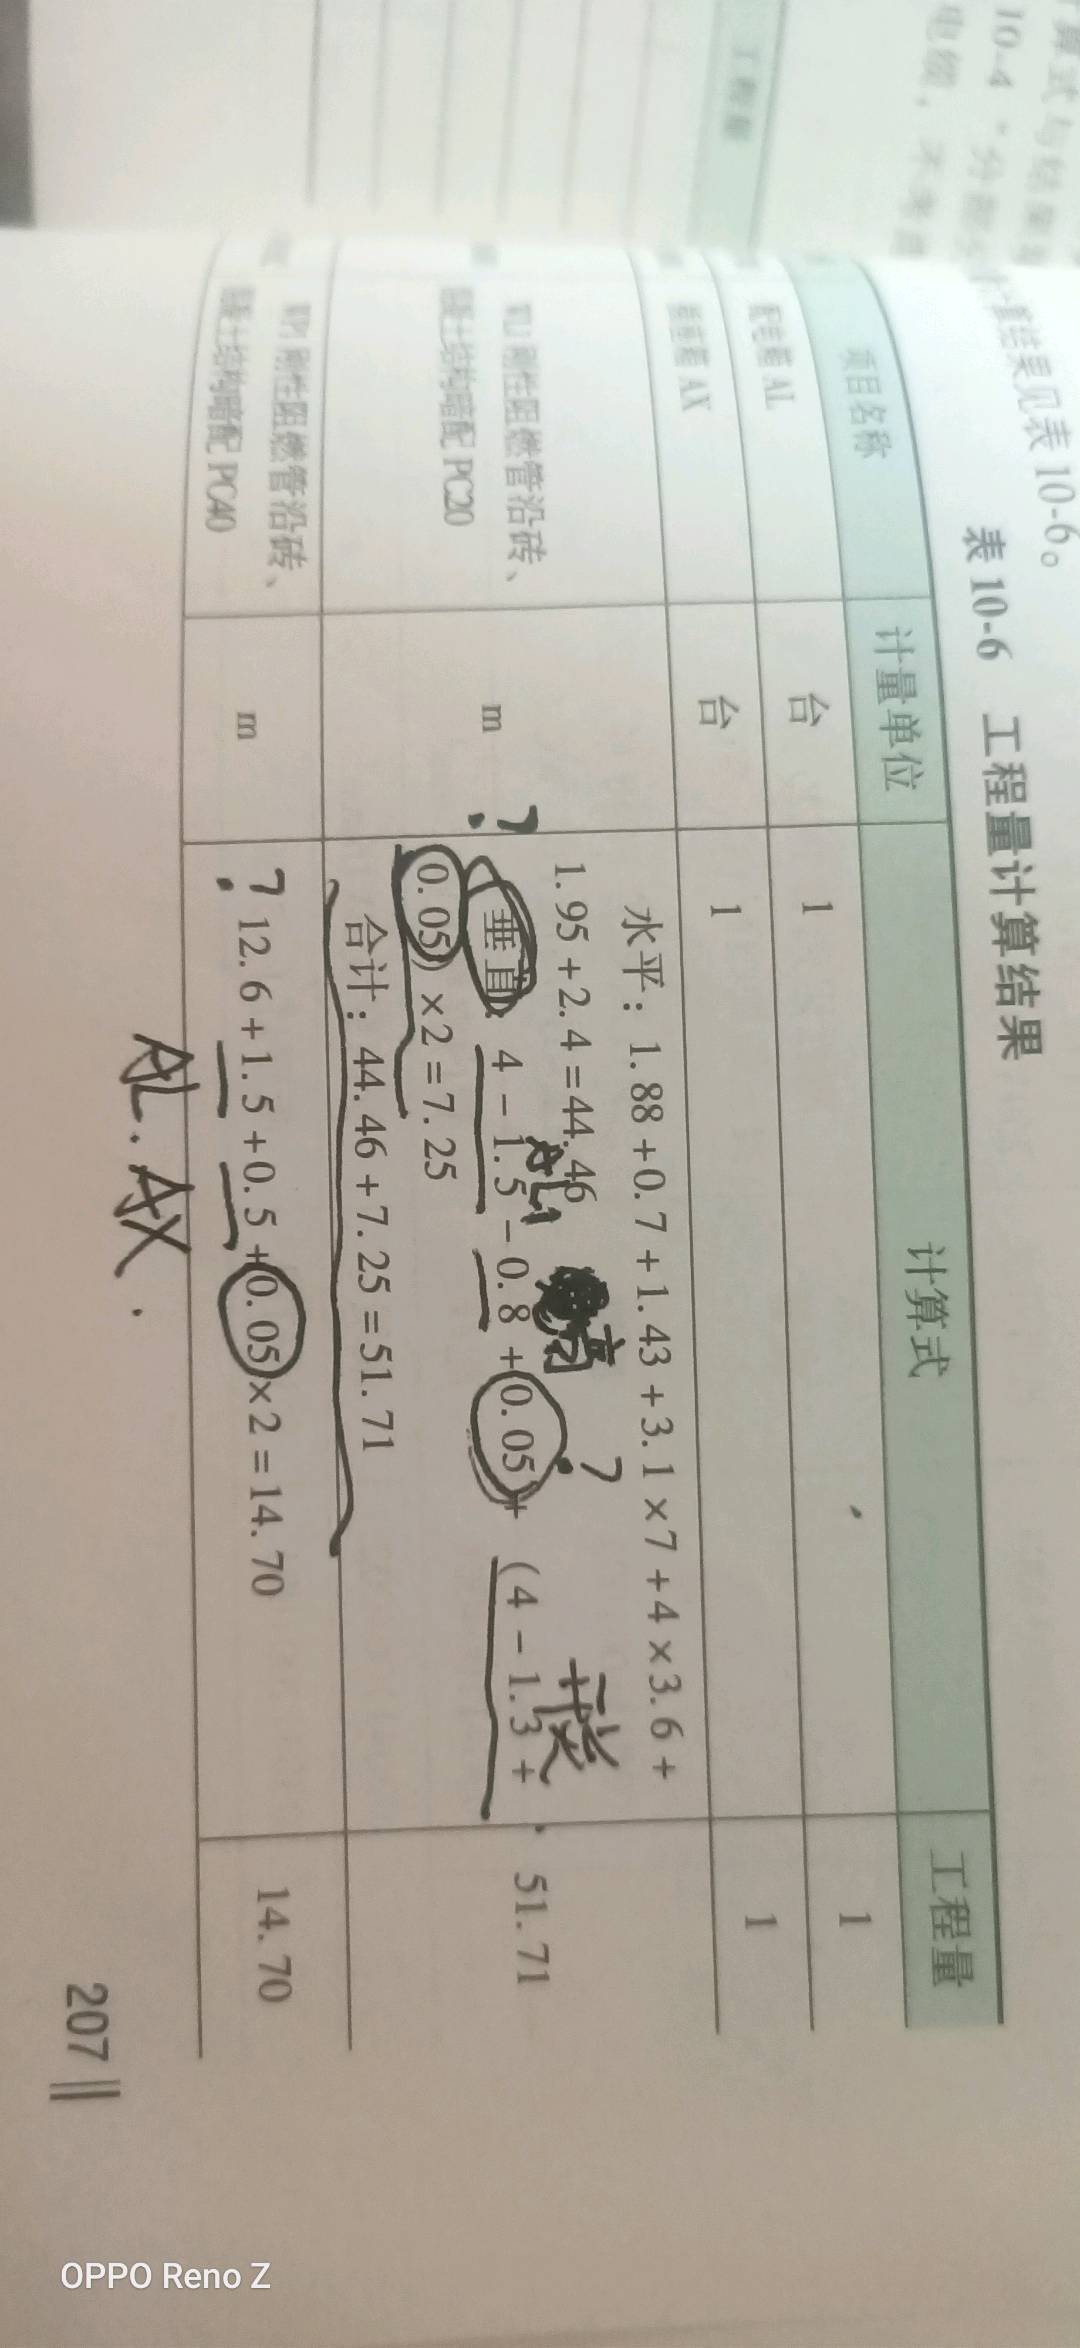 算式与结果
10-4
电缆，不考虑
工程量
计算结果见表 10-6。
表 10-6 工程量计算结果
项目名称 计量单位 计算式 工程量
配电箱 AL 台 1 1
AX 台 1 1
水平：1.88+0.7+1.43+3.1×7+4×3.6+
1.95+2.4=44.46
AL1 高 ? 开关
WL1 刚性阻燃管沿砖、 m ? 垂直：4-1.5-0.8+0.05+（4-1.3+ 51.71
混凝土结构暗配 PC20
0.05）×2=7.25
合计：44.46+7.25=51.71
WP1 刚性阻燃管沿砖、 m ? 12.6+1.5+0.5+0.05×2=14.70 14.70
混凝土结构暗配 PC40
AL. AX.
207
OPPO Reno Z